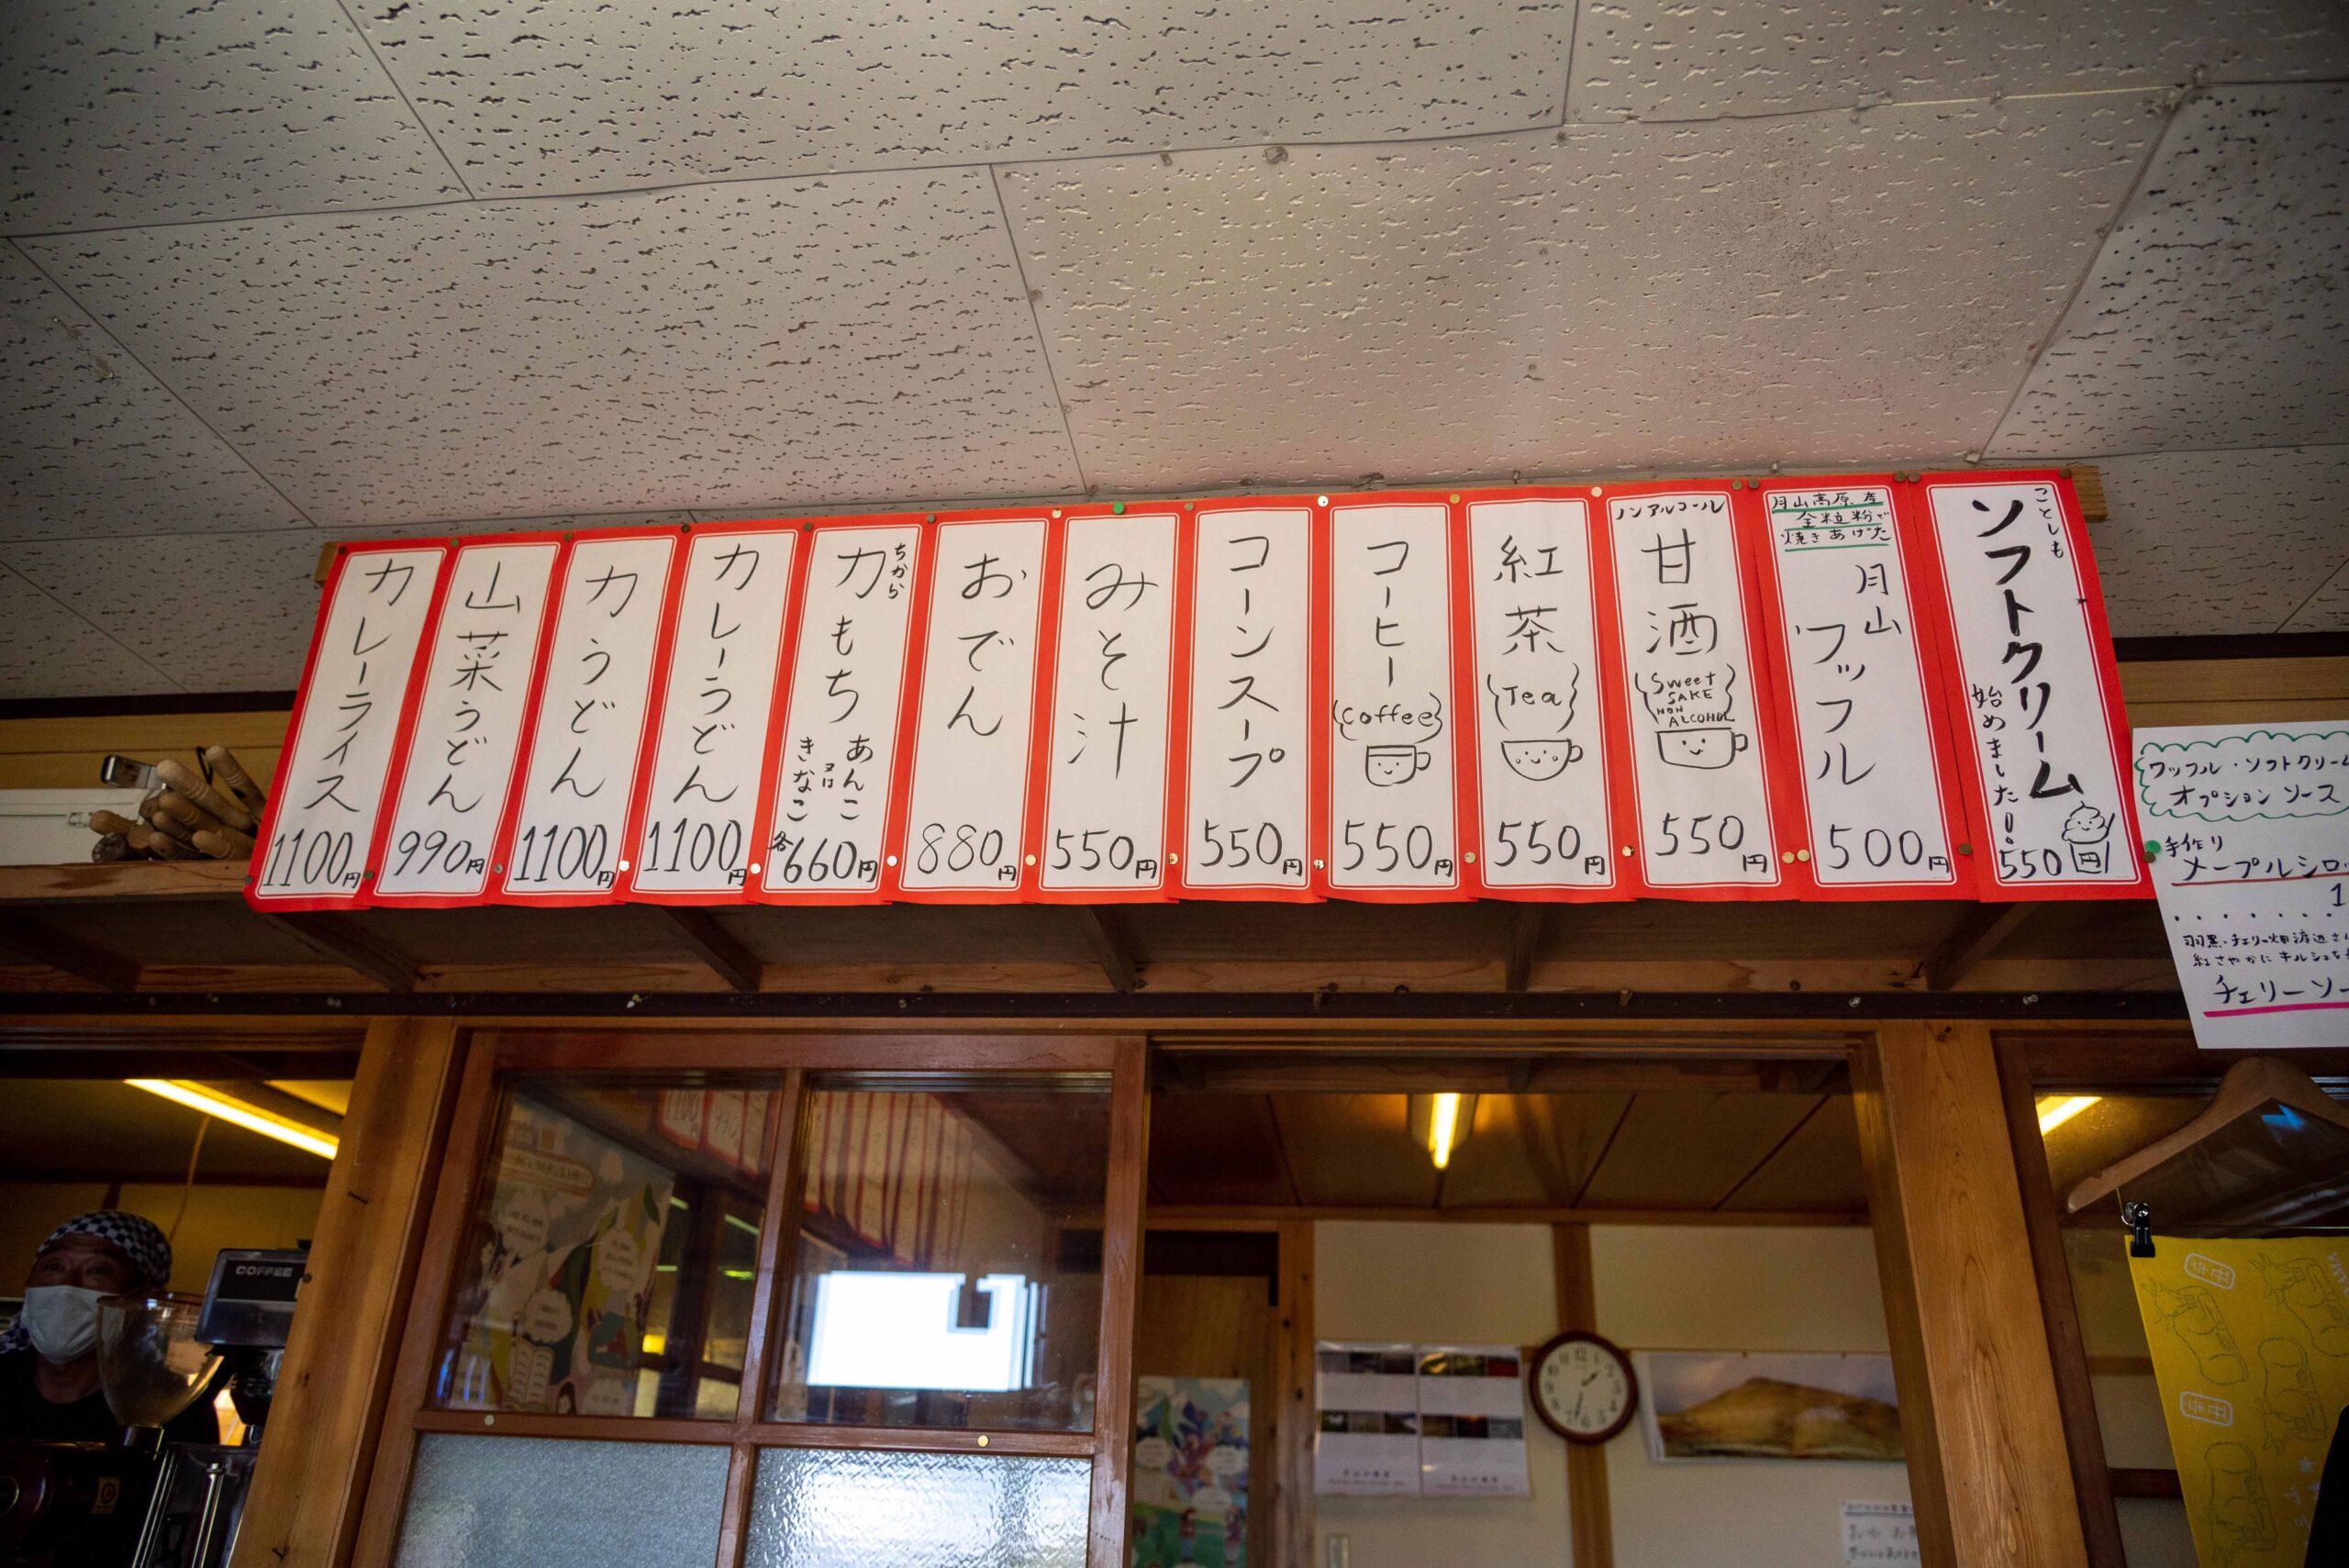 ことしも
ソフトクリーム
始めました!!
550円
月山高原産
全粒粉で
焼きあげた
月山
ワッフル
500円
ノンアルコール
甘酒
Sweet
SAKE
NON
ALCOHOL
550円
紅茶
Tea
550円
コーヒー
Coffee
550円
コーンスープ
550円
みそ汁
550円
おでん
880円
ちから
力もち
あんこ
又は
きなこ
各660円
カレーうどん
1100円
力うどん
1100円
山菜うどん
990円
カレーライス
1100円
ワッフル・ソフトクリーム
オプションソース
手作り
メープルシロ
1
羽黒・チェリー畑渡辺さ
紅さやかにキルシュを
チェリーソー
COFFEE